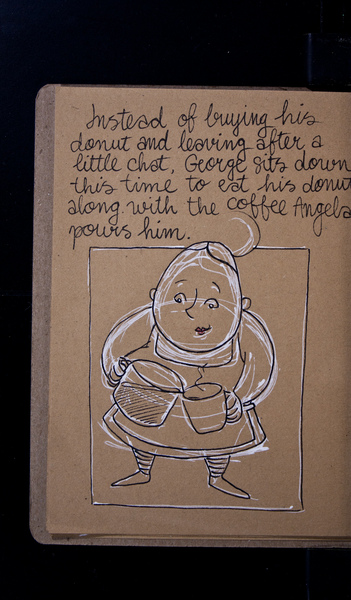 Instead of buying his
donut and leaving after a
little chat, George sits down
this time to eat his donut
along with the coffee Angela
pours him.